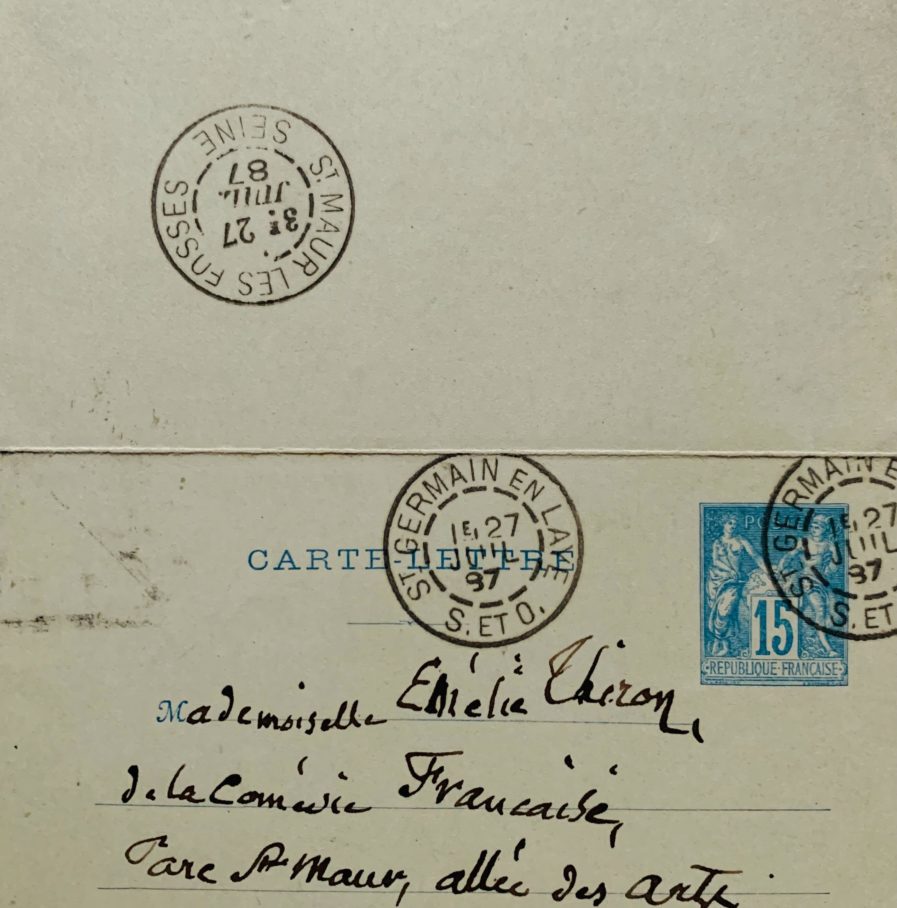 ST MAUR LES FOSSES
SEINE
3E 27
JUIL
87
ST GERMAIN EN LAYE
1E 27
JUIL
87
S. ET O.
CARTE-LETTRE
ST GERMAIN E
1E 27
JUIL
87
S. ET
15
RÉPUBLIQUE FRANÇAISE
Mademoiselle Emélie Thiron,
de la Comédie Française,
Parc St Maur, allée des arts